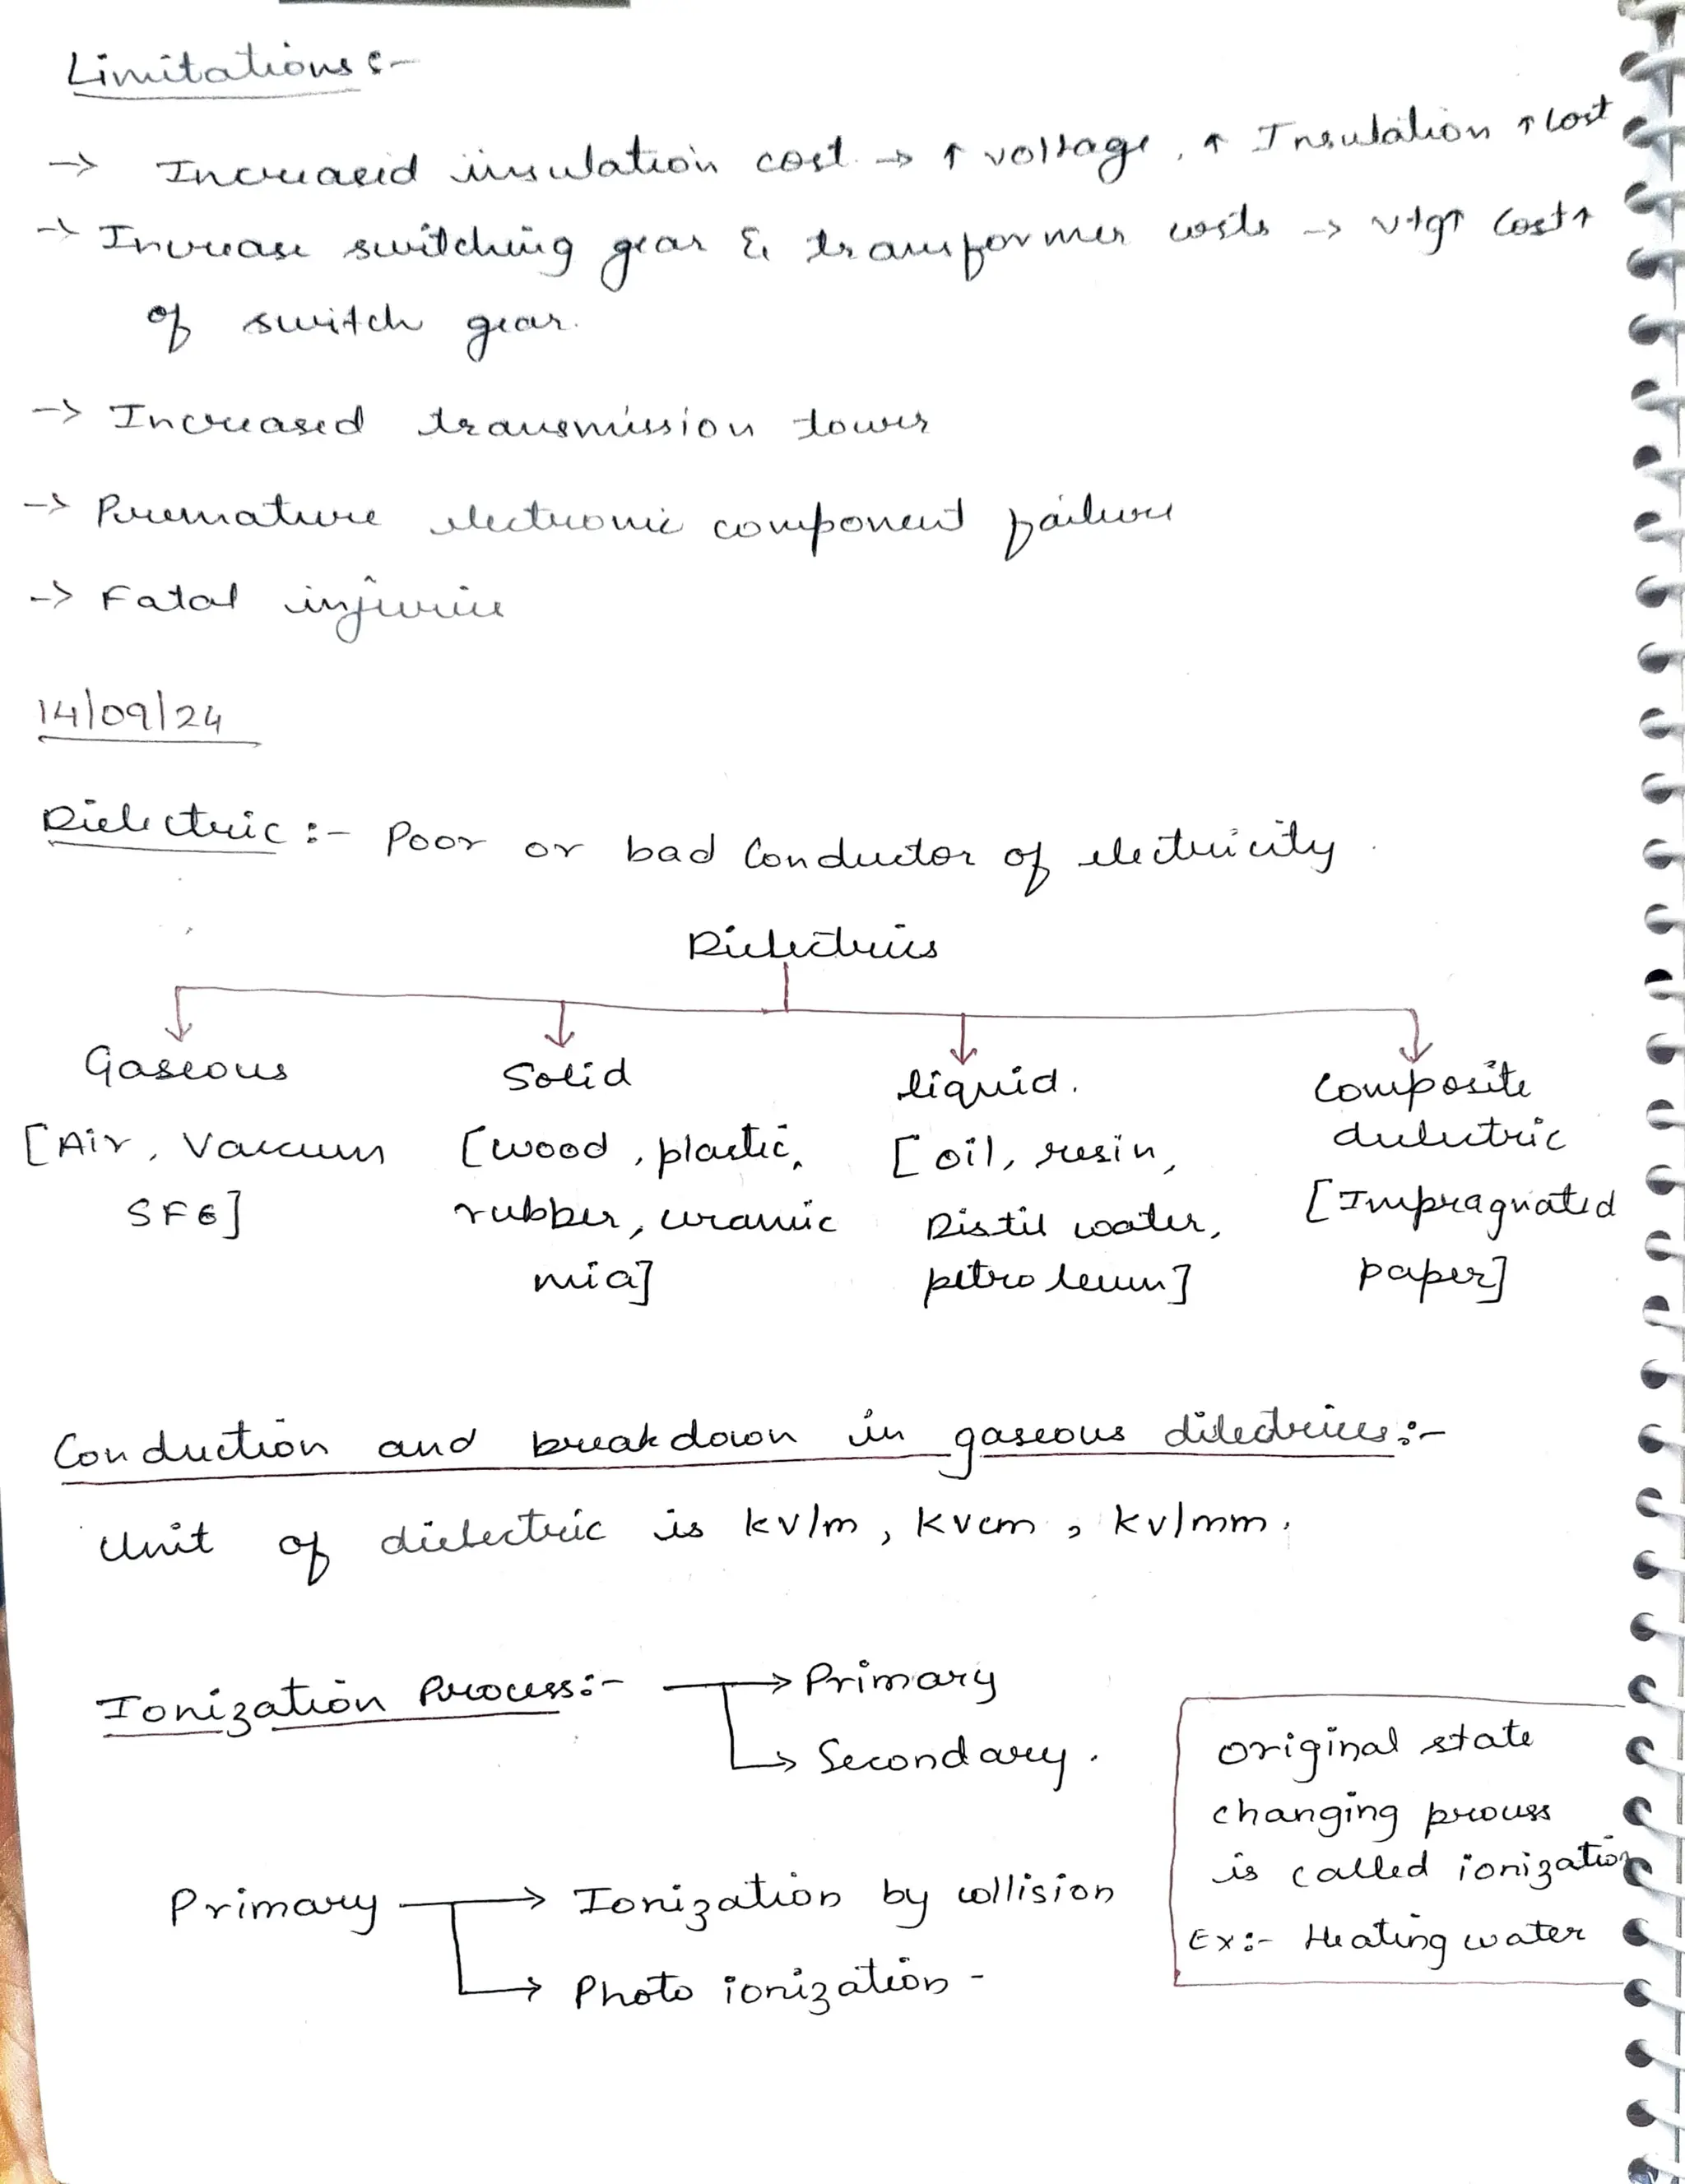 Limitations :-
-> Increased insulation cost -> ↑ voltage, ↑ Insulation ↑ Cost
-> Increase switching gear & transformer costs -> vtg↑ Cost↑
of switch gear.
-> Increased transmission tower
-> Premature electronic component failure
-> Fatal injuries
14/09/24
Dielectric :- Poor or bad Conductor of electricity.
Dielectrics
Gaseous Solid liquid. Composite
dielectric
[Air, Vaccum [wood, plastic, [oil, resin, [Impragnated
SF6] rubber, ceramic Distil water, paper]
mia] petroleum]
Conduction and breakdown in gaseous dilectrices :-
Unit of dielectric is kv/m, kvcm, kv/mm.
Ionization Process :- -> Primary
-> Secondary.
original state
changing process
is called ionization
Ex :- Heating water
Primary -> Ionization by collision
-> Photo ionization -